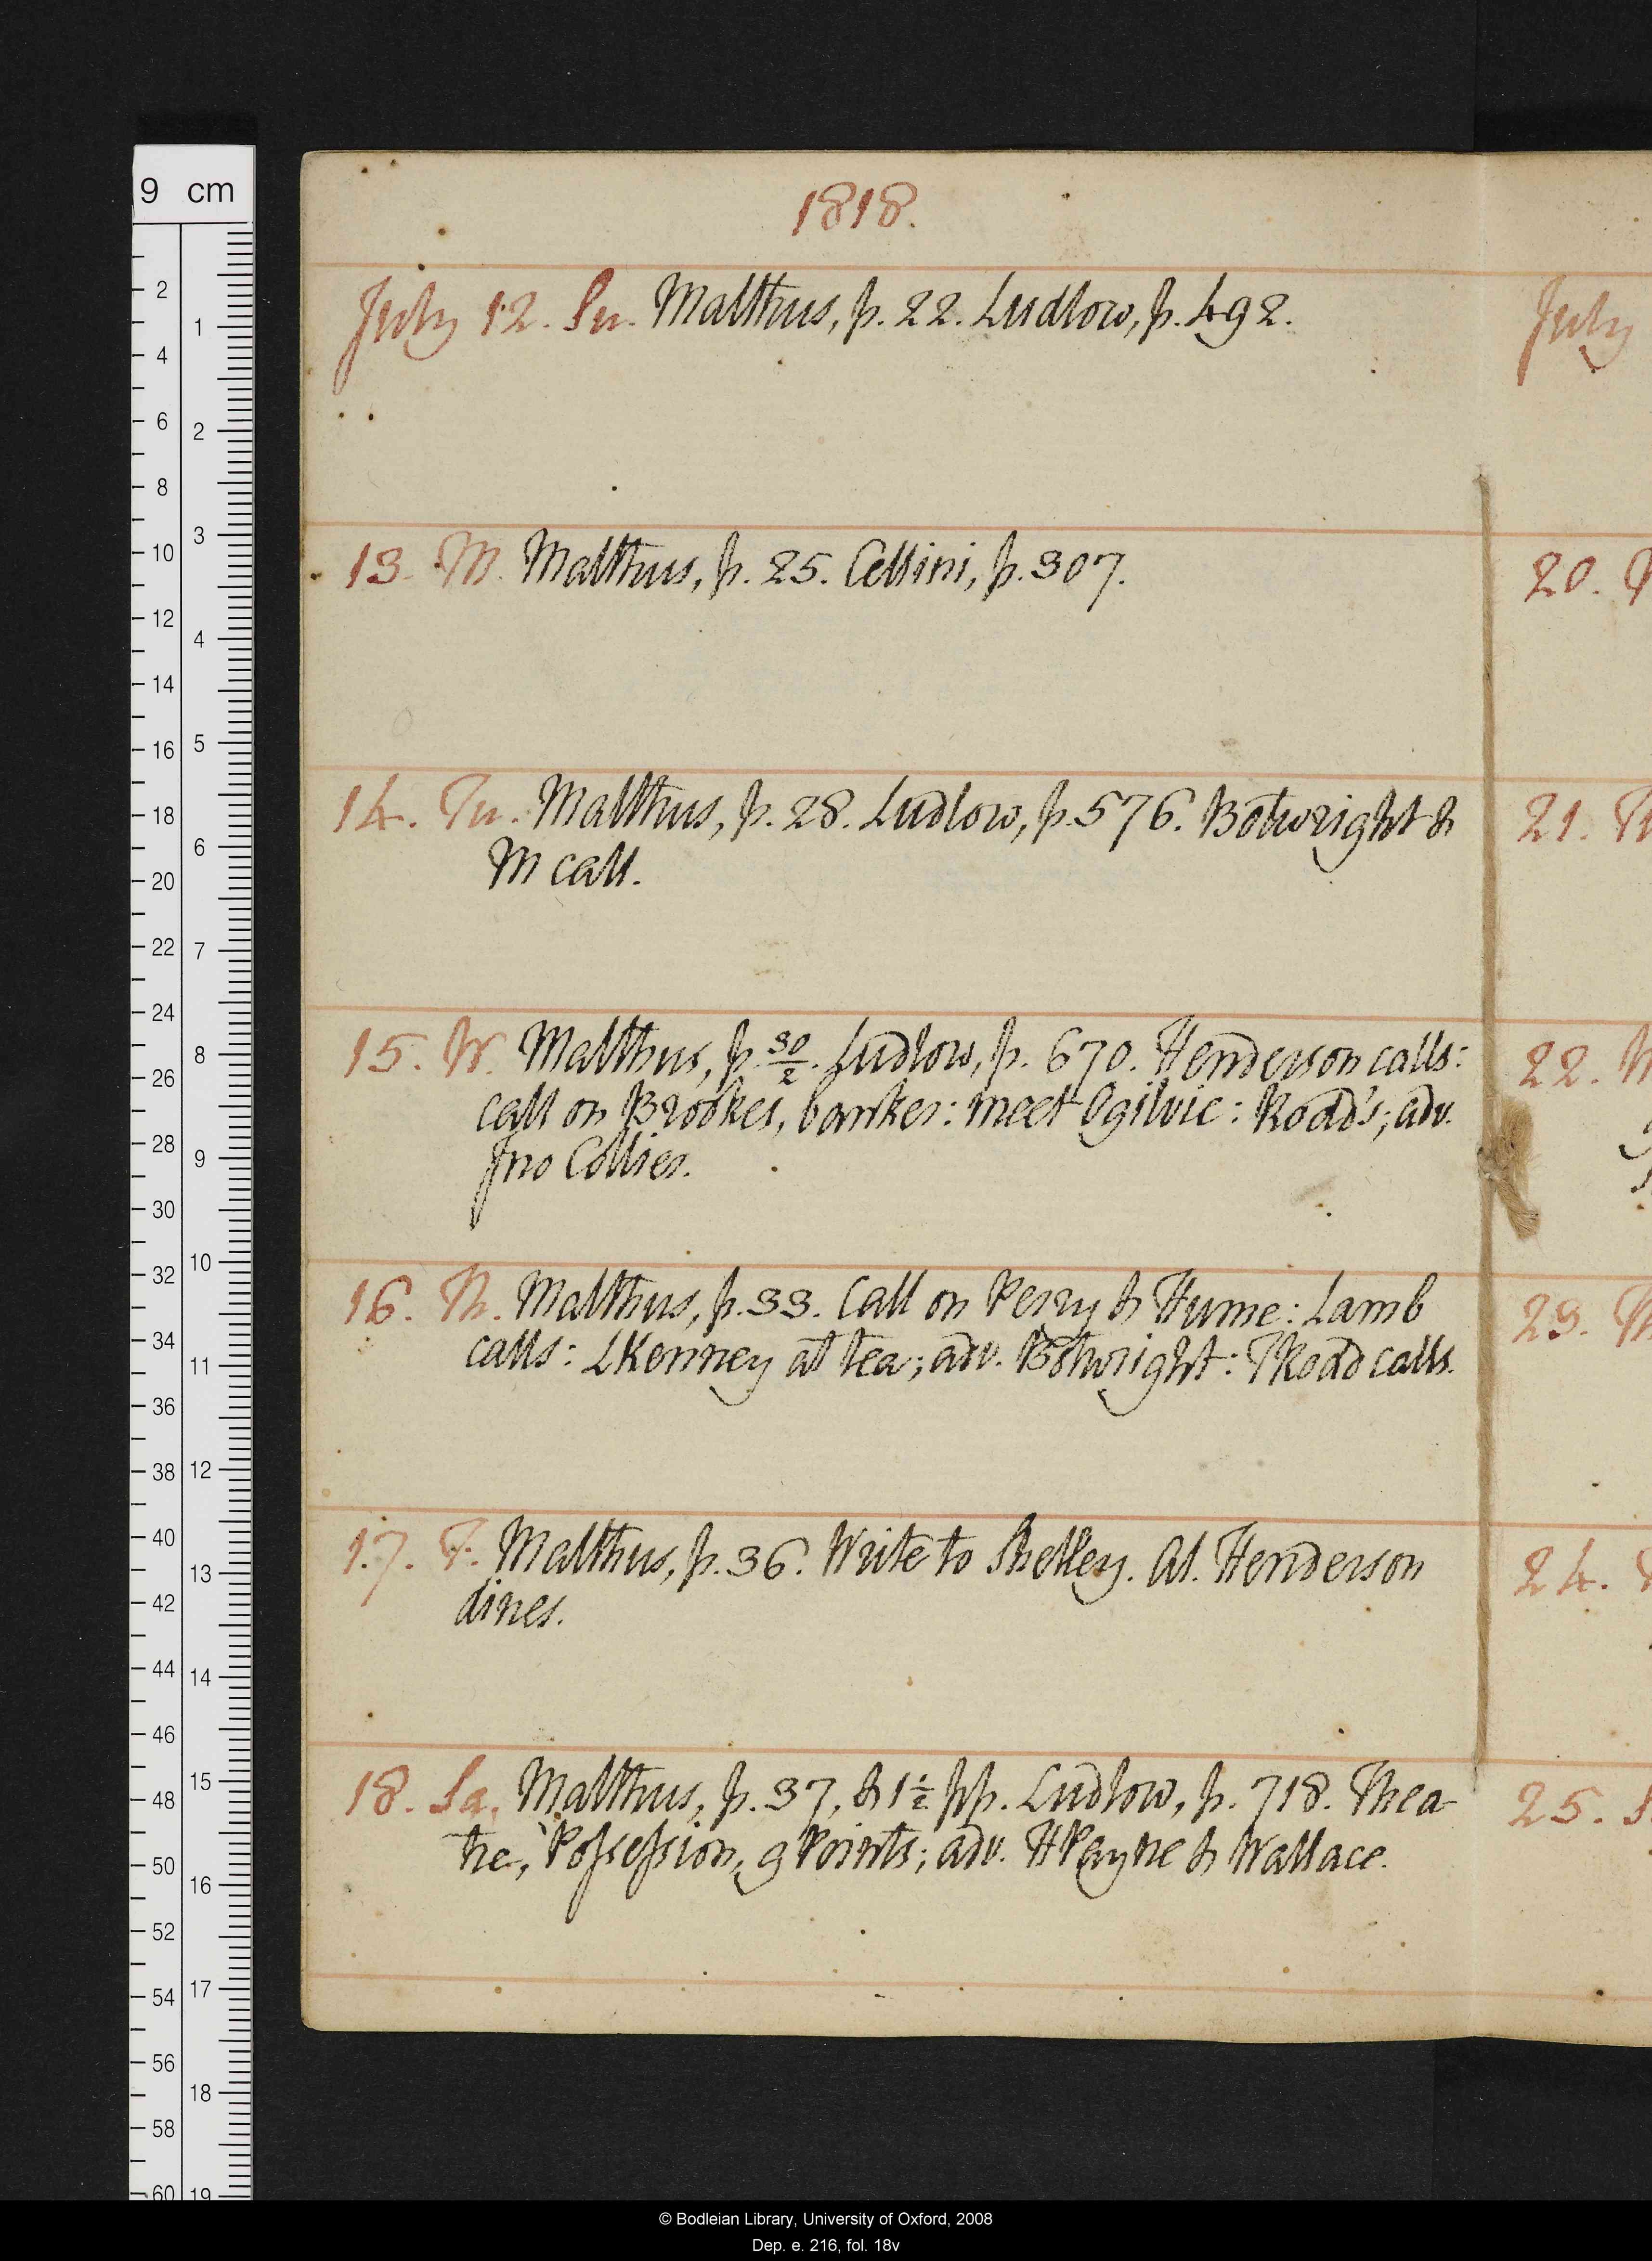 1818.
July 12. Su. Malthus, p. 22. Ludlow, p. 492.
13. M. Malthus, p. 25. Cellini, p. 307.
14. Tu. Malthus, p. 28. Ludlow, p. 576. Botwright &
M call.
15. W. Malthus, p. 30/2. Ludlow, p. 670. Henderson calls:
call on Brookes, banker: meet Ogilvie: Road's; adv.
Jno Collier.
16. Th. Malthus, p. 33. Call on Perry & Hume: Lamb
calls: LKenney at tea; adv. Botwright: TRoad calls.
17. F. Malthus, p. 36. Write to Shelley. Al. Henderson
dines.
18. Sa. Malthus, p. 37, & 1½ pp. Ludlow, p. 718. Thea-
tre, Possession, 9 Points; adv. HPayne & Wallace.
July
20.
21. T
22.
23. Th
24.
25. S
9 cm
2 4 6 8 10 12 14 16 18 20 22 24 26 28 30 32 34 36 38 40 42 44 46 48 50 52 54 56 58 60
1 2 3 4 5 6 7 8 9 10 11 12 13 14 15 16 17 18 19
© Bodleian Library, University of Oxford, 2008
Dep. e. 216, fol. 18v